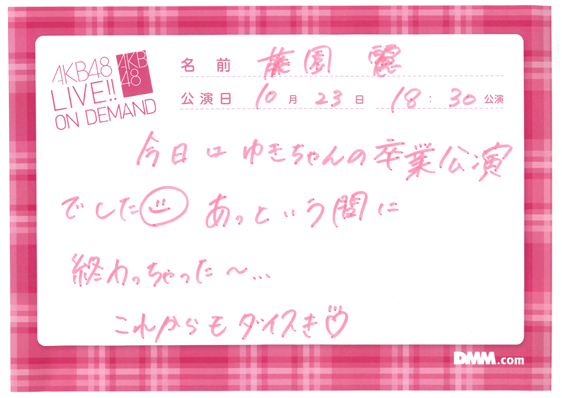 AKB48
LIVE!!
ON DEMAND
AKB
48
名前 葉園 麗
公演日 10月23日 18:30公演
今日はゆきちゃんの卒業公演
でした あっという間に
終わっちゃった〜…
これからもダイスキ♡
DMM.com